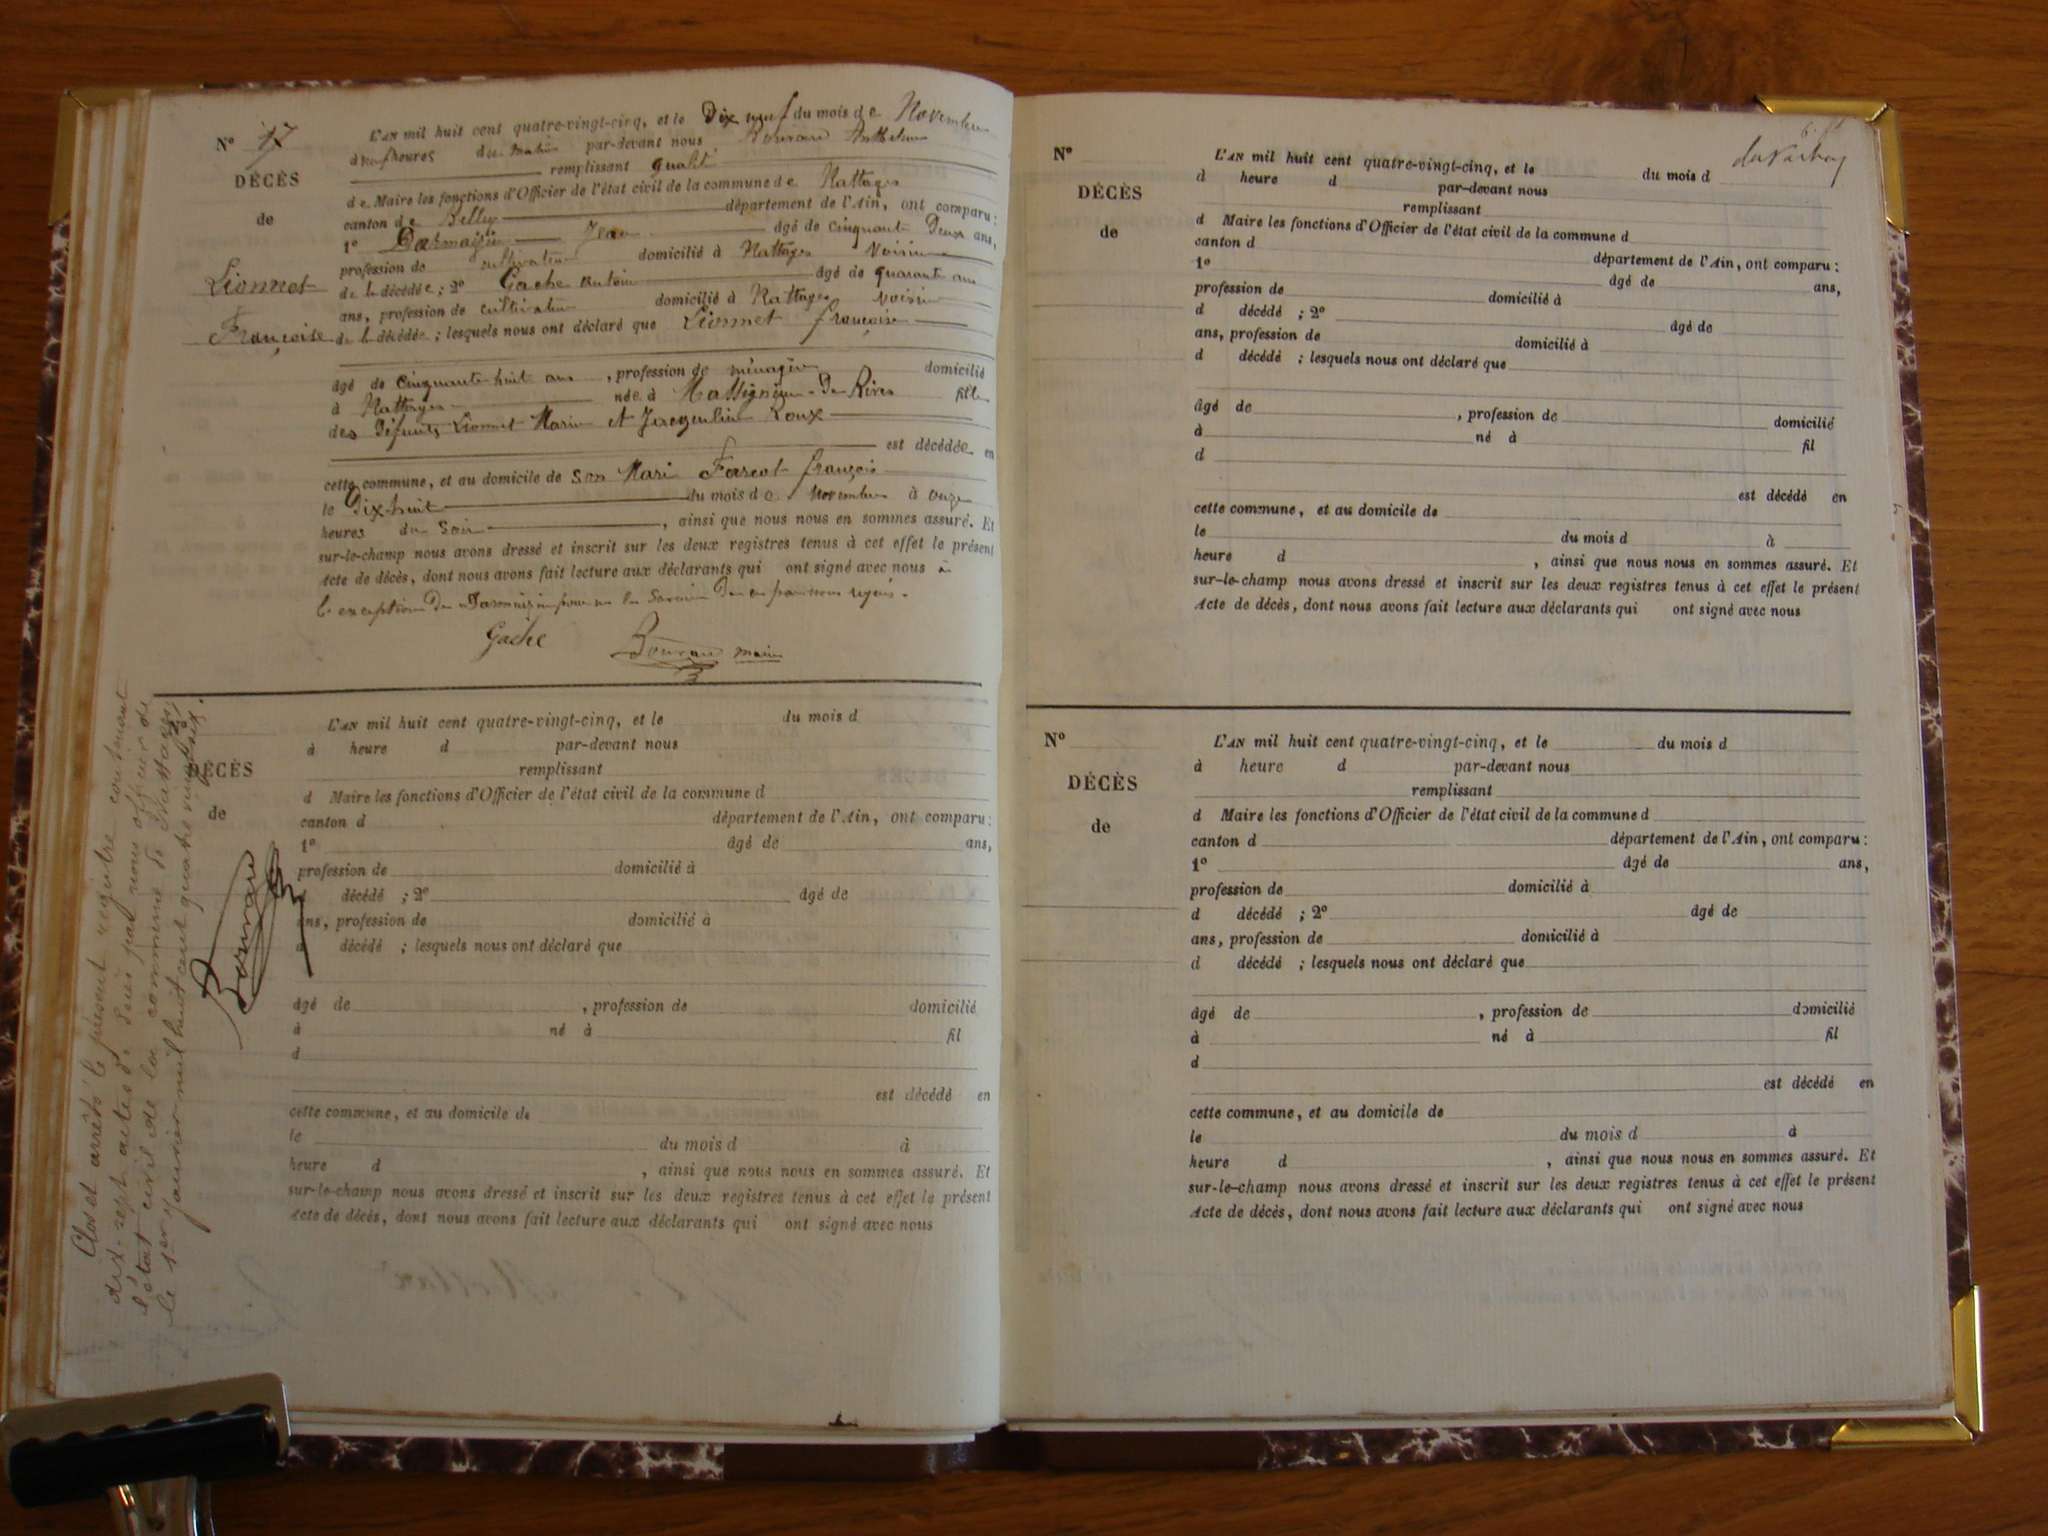 N° 17
DÉCÈS
de
Lionnet
Françoise
L'AN mil huit cent quatre-vingt-cinq, et le Dix neuf du mois de Novembre
à neuf heures du matin par-devant nous
remplissant qualité
de Maire les fonctions d'Officier de l'état civil de la commune de Nattages
canton de Belley département de l'Ain, ont comparu :
1° Jean âgé de cinquante Deux ans,
profession de cultivateur domicilié à Nattages voisin
de la décédée ; 2° Gache Antoine âgé de quarante un
ans, profession de cultivateur domicilié à Nattages voisin
de la décédée ; lesquels nous ont déclaré que Lionnet françoise
âgé de cinquante-huit ans , profession de ménagère domicilié
à Nattages née à Massignieu-De Rives fille
des Défunts Lionnet Marin et Jacqueline Roux
est décédée en
cette commune, et au domicile de son Mari François
le Dix-huit du mois de Novembre à onze
heures du soir , ainsi que nous nous en sommes assuré. Et
sur-le-champ nous avons dressé et inscrit sur les deux registres tenus à cet effet le présent
Acte de décès, dont nous avons fait lecture aux déclarants qui ont signé avec nous à
l'exception de pour ne le savoir De ce par nous requis.
Gache maire
N°
DÉCÈS
de
L'AN mil huit cent quatre-vingt-cinq, et le du mois d
à heure d par-devant nous
remplissant
d Maire les fonctions d'Officier de l'état civil de la commune d
canton d département de l'Ain, ont comparu :
1° âgé de ans,
profession de domicilié à
d décédé ; 2° âgé de
ans, profession de domicilié à
d décédé ; lesquels nous ont déclaré que
âgé de , profession de domicilié
à né à fil
d
est décédé en
cette commune, et au domicile de
le du mois d à
heure d , ainsi que nous nous en sommes assuré. Et
sur-le-champ nous avons dressé et inscrit sur les deux registres tenus à cet effet le présent
Acte de décès, dont nous avons fait lecture aux déclarants qui ont signé avec nous
Clos et arrêté le présent registre contenant
dix-sept actes de décès par nous officier de
l'état civil de la commune de Nattages
le 1er janvier mil huit cent quatre vingt six.
N°
DÉCÈS
de
L'AN mil huit cent quatre-vingt-cinq, et le du mois d
à heure d par-devant nous
remplissant
d Maire les fonctions d'Officier de l'état civil de la commune d
canton d département de l'Ain, ont comparu :
1° âgé de ans,
profession de domicilié à
d décédé ; 2° âgé de
ans, profession de domicilié à
d décédé ; lesquels nous ont déclaré que
âgé de , profession de domicilié
à né à fil
d
est décédé en
cette commune, et au domicile de
le du mois d à
heure d , ainsi que nous nous en sommes assuré. Et
sur-le-champ nous avons dressé et inscrit sur les deux registres tenus à cet effet le présent
Acte de décès, dont nous avons fait lecture aux déclarants qui ont signé avec nous
N°
DÉCÈS
de
L'AN mil huit cent quatre-vingt-cinq, et le du mois d
à heure d par-devant nous
remplissant
d Maire les fonctions d'Officier de l'état civil de la commune d
canton d département de l'Ain, ont comparu :
1° âgé de ans,
profession de domicilié à
d décédé ; 2° âgé de
ans, profession de domicilié à
d décédé ; lesquels nous ont déclaré que
âgé de , profession de domicilié
à né à fil
d
est décédé en
cette commune, et au domicile de
le du mois d à
heure d , ainsi que nous nous en sommes assuré. Et
sur-le-champ nous avons dressé et inscrit sur les deux registres tenus à cet effet le présent
Acte de décès, dont nous avons fait lecture aux déclarants qui ont signé avec nous